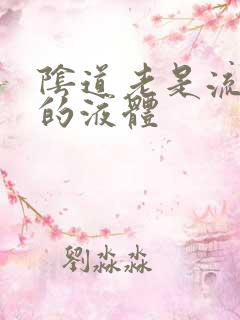 陰道老是流
的液體
劉淼淼